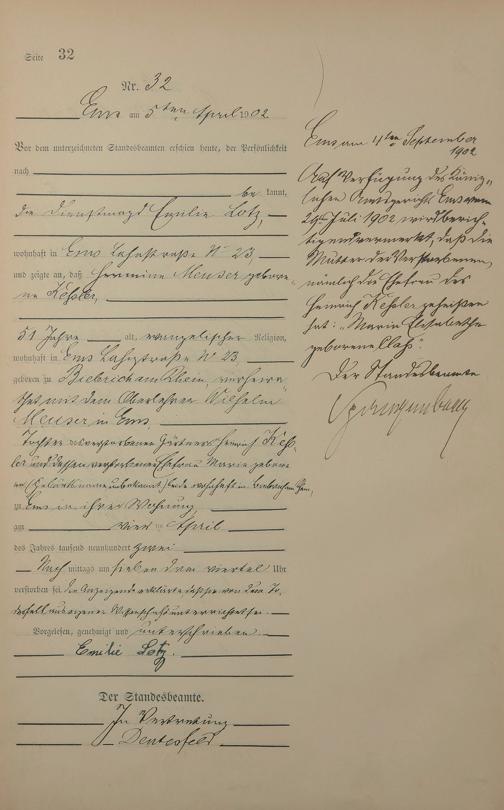 Seite 32
Nr. 32
Ems am 5ten April 1902
Vor dem unterzeichneten Standesbeamten erschien heute, der Persönlichkeit
nach
be kannt,
die Dienstmagd Emilie Lotz,
wohnhaft in Ems Lahnstraße No 23
und zeigte an, daß Hermine Meuser gebore-
ne Keßler,
51 Jahre alt, evangelischer Religion,
wohnhaft in Ems Lahnstraße No 23
geboren zu Biebrich am Rhein, verheira-
thet mit dem Oberlehrer Wilhelm
Meuser in Ems,
Tochter des verstorbenen Gärtners Heinrich Keß-
ler und dessen verstorbenen Ehefrau Marie gebore-
nen (Geburtsname unbekannt) beide wohnhaft in Biebrich am Rhein,
zu Ems in ihrer Wohnung,
am vier ten April
des Jahres tausend neunhundert zwei
Nach mittags um sieben drei viertel Uhr
verstorben sei, die Anzeigende erklärte daß sie von dem To-
desfall aus eigener Wissenschaft unterrichtet sei.
Vorgelesen, genehmigt und unterschrieben
Emilie Lotz.
Der Standesbeamte.
In Vertretung
Ems am 4ten September
1902
Auf Verfügung des König-
lichen Amtsgerichts Ems vom
24. Juli 1902 wird berich-
tigend vermerkt, daß die
Mutter der Verstorbenen,
nämlich die Ehefrau des
Heinrich Keßler geheißen
hat: "Maria Elisabetha
geborene Claß".
Der Standesbeamte